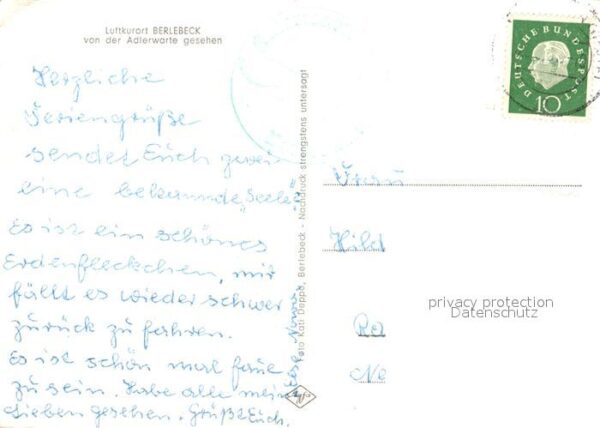 Luftkurort BERLEBECK
von der Adlerwarte gesehen
Herzliche
Feriengrüße
sendet Euch
eine bekannte „Seele"
Es ist ein schönes
Erdenfleckchen, mir
fällt es wieder schwer
zurück zu fahren.
Es ist schön mal faul
zu sein. Habe alle meine
Lieben gesehen. Grüßt Euch.
Foto Kati Deppe, Berlebeck - Nachdruck strengstens untersagt
Agfa
DEUTSCHE BUNDESPOST
10
Frau
Hild
privacy protection
Datenschutz
Ne